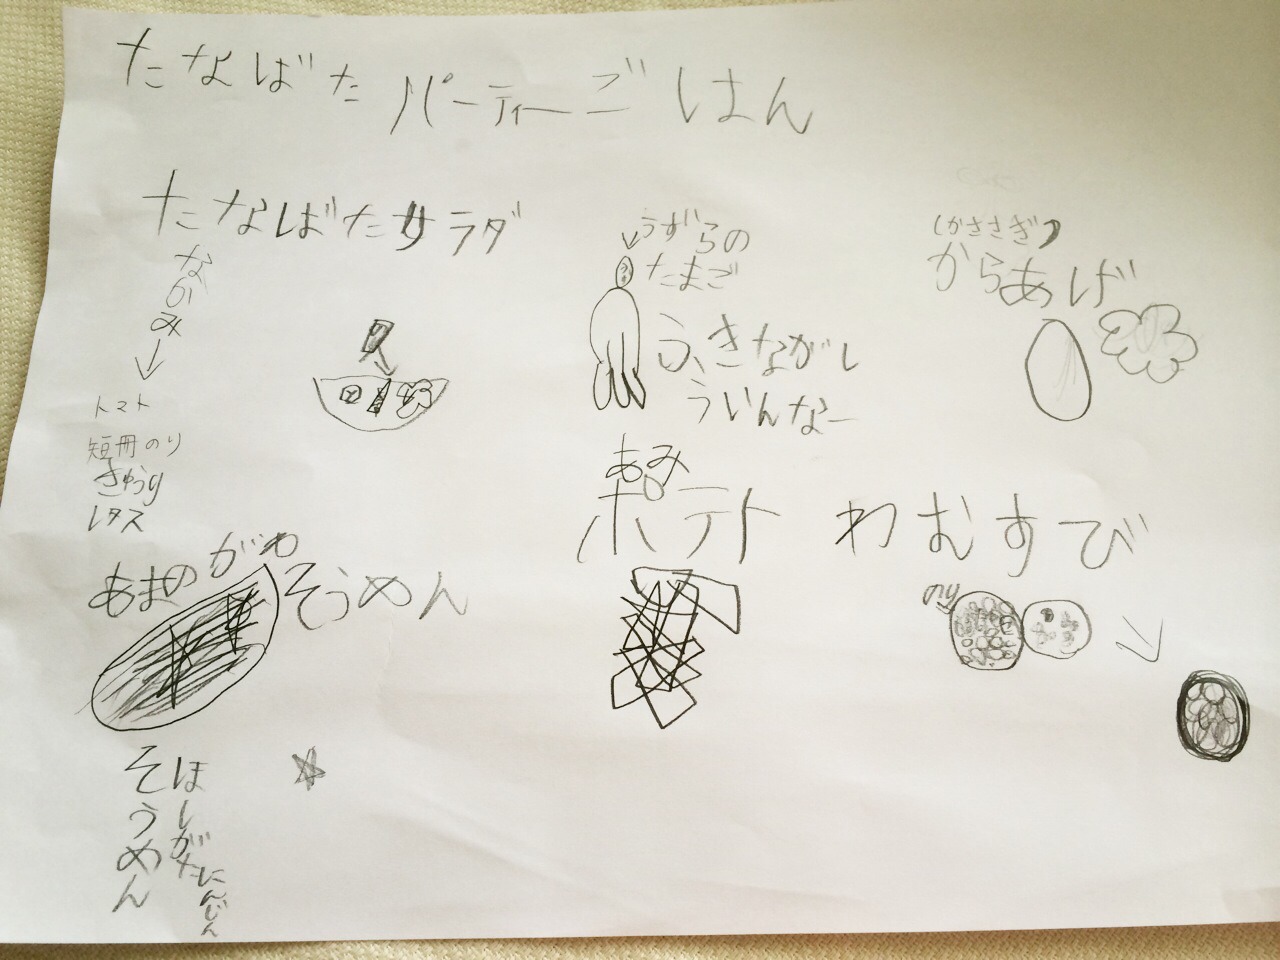 たなばたパーティーごはん
たなばたサラダ
なかみ↓
トマト
短冊のり
きゅうり
レタス
うずらの
たまご
ふきながし
ういんなー
(かささぎ)
からあげ
あまのがわ
そうめん
そうめん
ほしがた
にんじん
あみ
ポテト
わむすび
のり